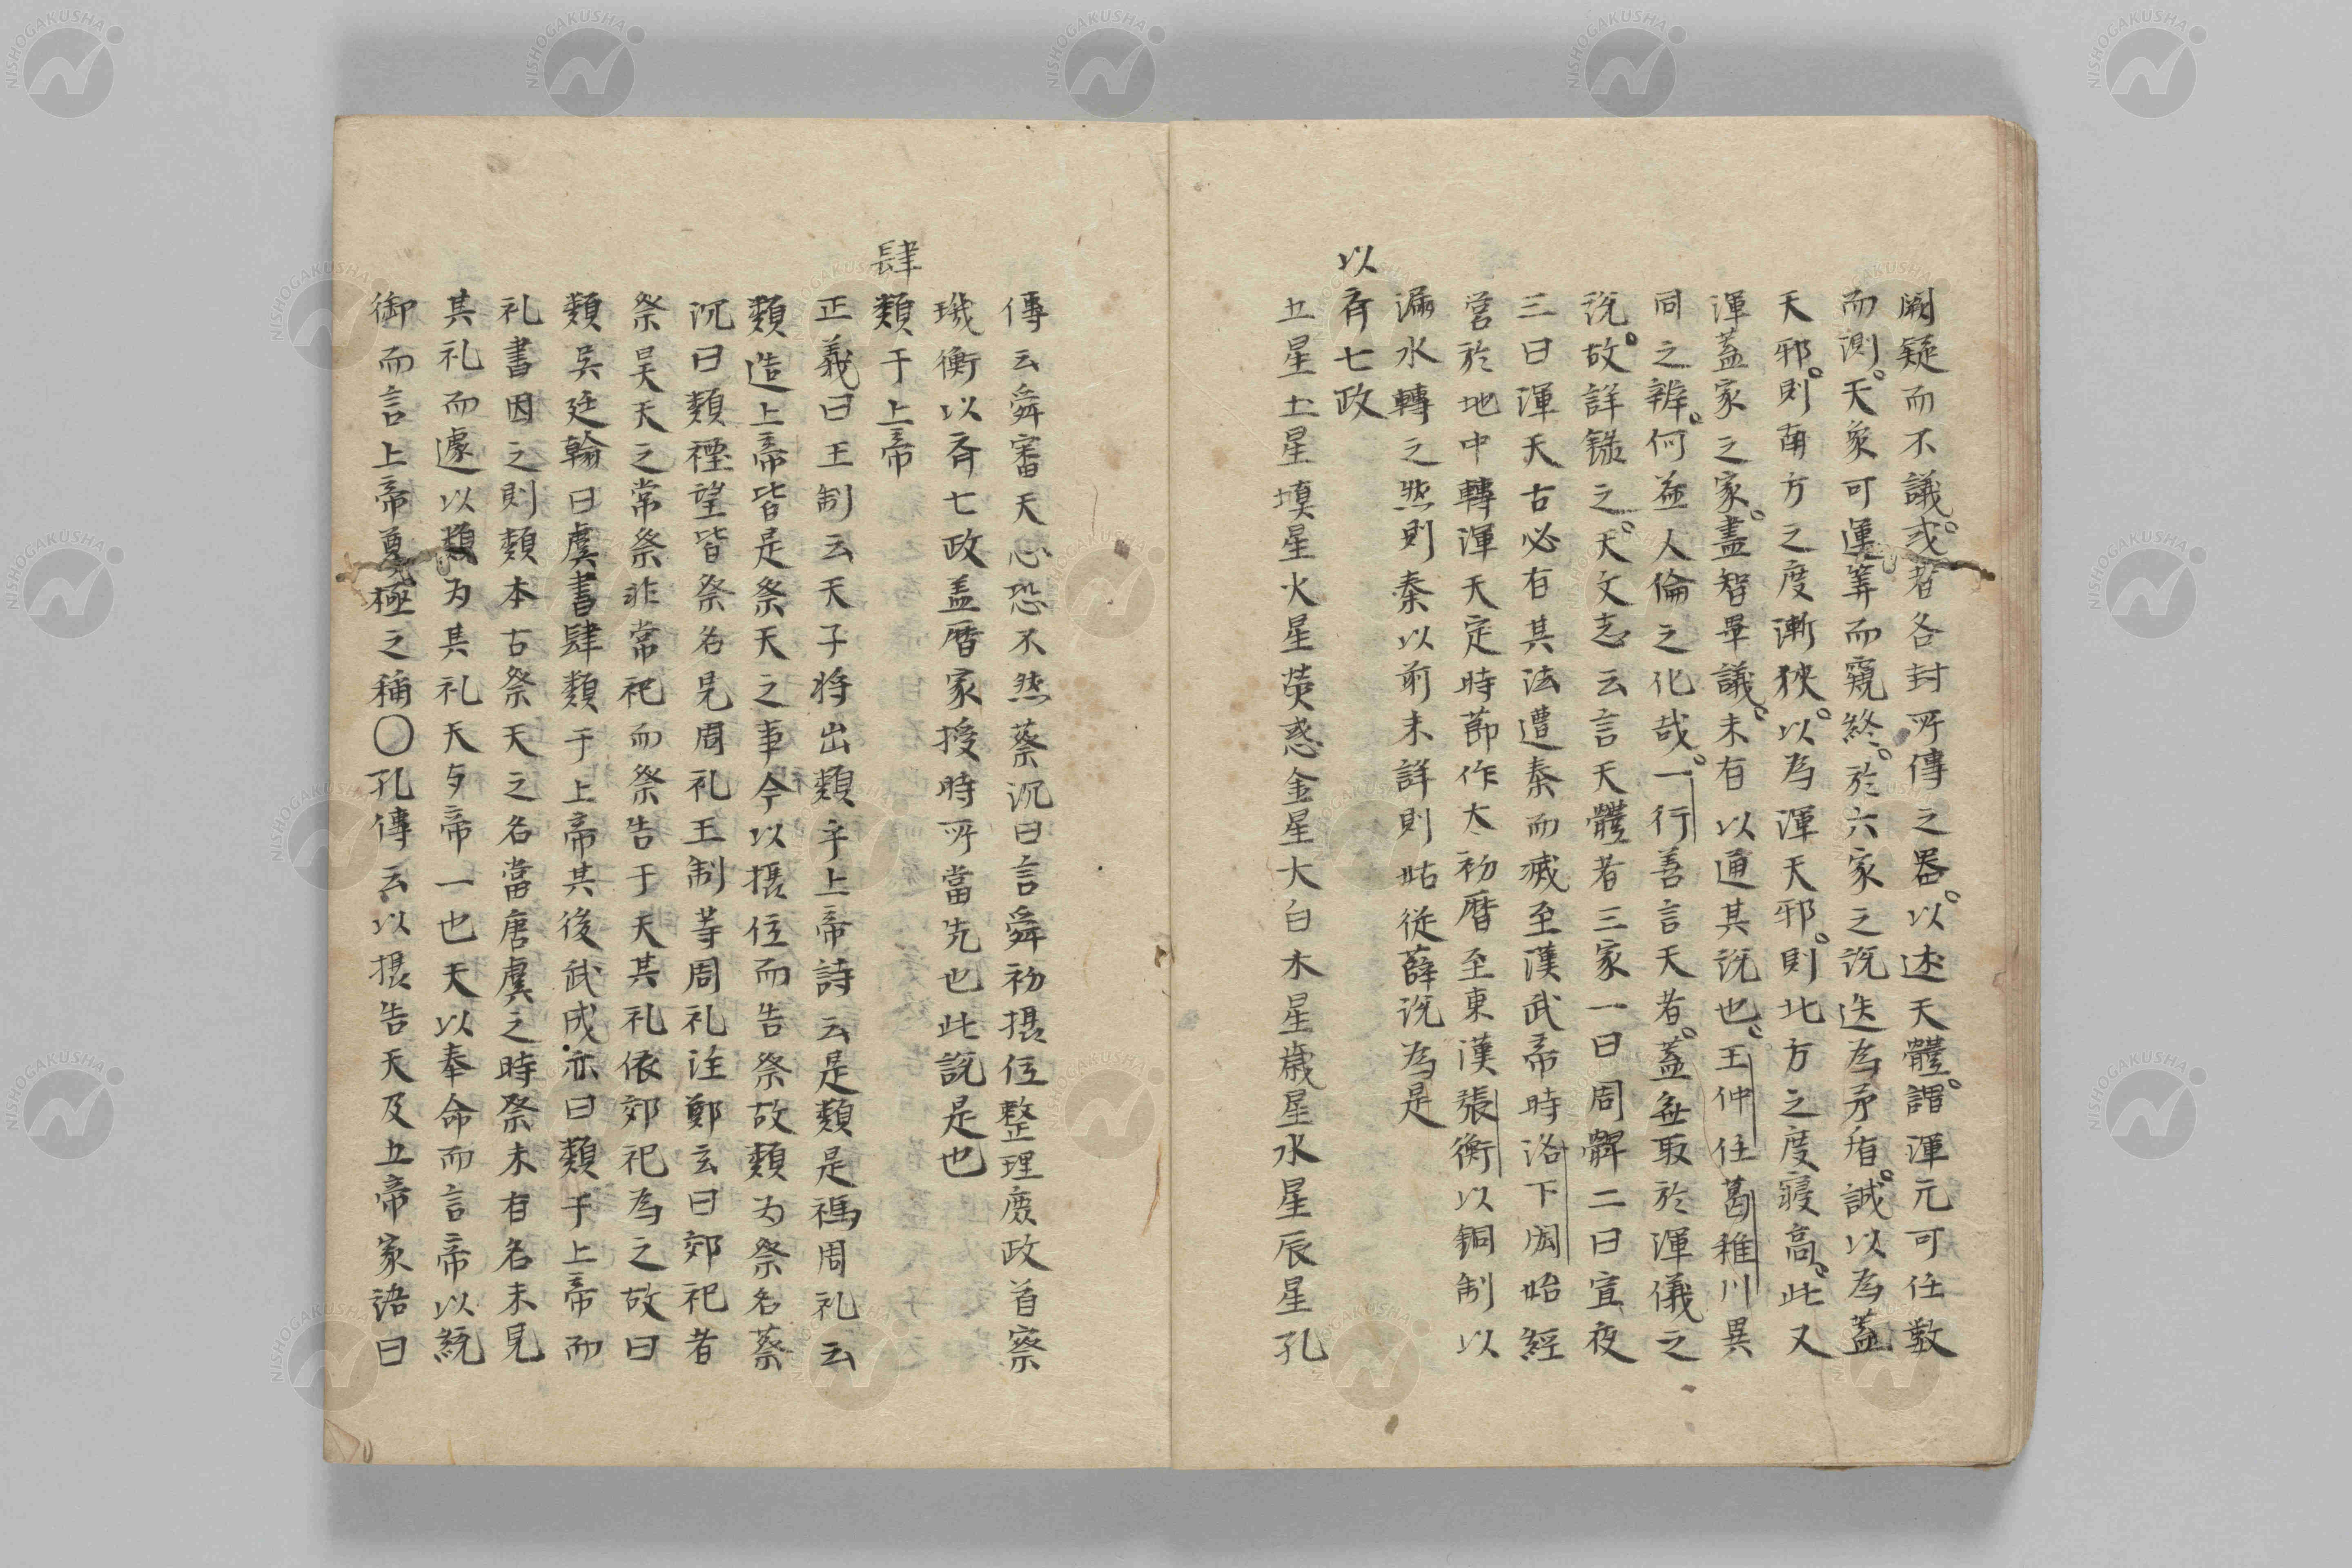 闕疑而不議或者各封所傳之器以述天體謂渾元可任數
而測天象可運筭而窺終於六家之説迭為矛盾誠以為蓋
天邪則南方之度漸狹以為渾天邪則北方之度寖高此又
渾蓋家之家盡智畢議未有以通其説也王仲任葛稚川異
同之辨何益人倫之化哉一行善言天者蓋無取於渾儀之
説故詳録之天文志云言天體者三家一曰周髀二曰宣夜
三曰渾天古必有其法遭秦而滅至漢武帝時洛下閎始經
営於地中轉渾天定時節作太初暦至東漢張衡以銅制以
漏水轉之然則秦以前未詳則姑從薛説為是
以齊七政
五星土星塡星火星熒惑金星大白木星歳星水星辰星孔
傳云舜審天心恐不然蔡沉曰言舜初摂位整理庶政首察
璣衡以齊七政盖暦家授時所當先也此説是也
肆類于上帝
正義曰王制云天子将出類乎上帝詩云是類是禡周礼云
類造上帝皆是祭天之事今以摂位而告祭故類为祭名蔡
沉曰類禋望皆祭名見周礼王制等周礼注鄭玄曰郊祀者
祭昊天之常祭非常祀而祭告于天其礼依郊祀為之故曰
類吳廷翰曰虞書肆類于上帝其後武成亦曰類于上帝而
礼書因之則類本古祭天之名當唐虞之時祭未有名未見
其礼而遽以類为其礼天与帝一也天以奉命而言帝以統
御而言上帝尊極之稱〇孔傳云以摂告天及五帝家語曰